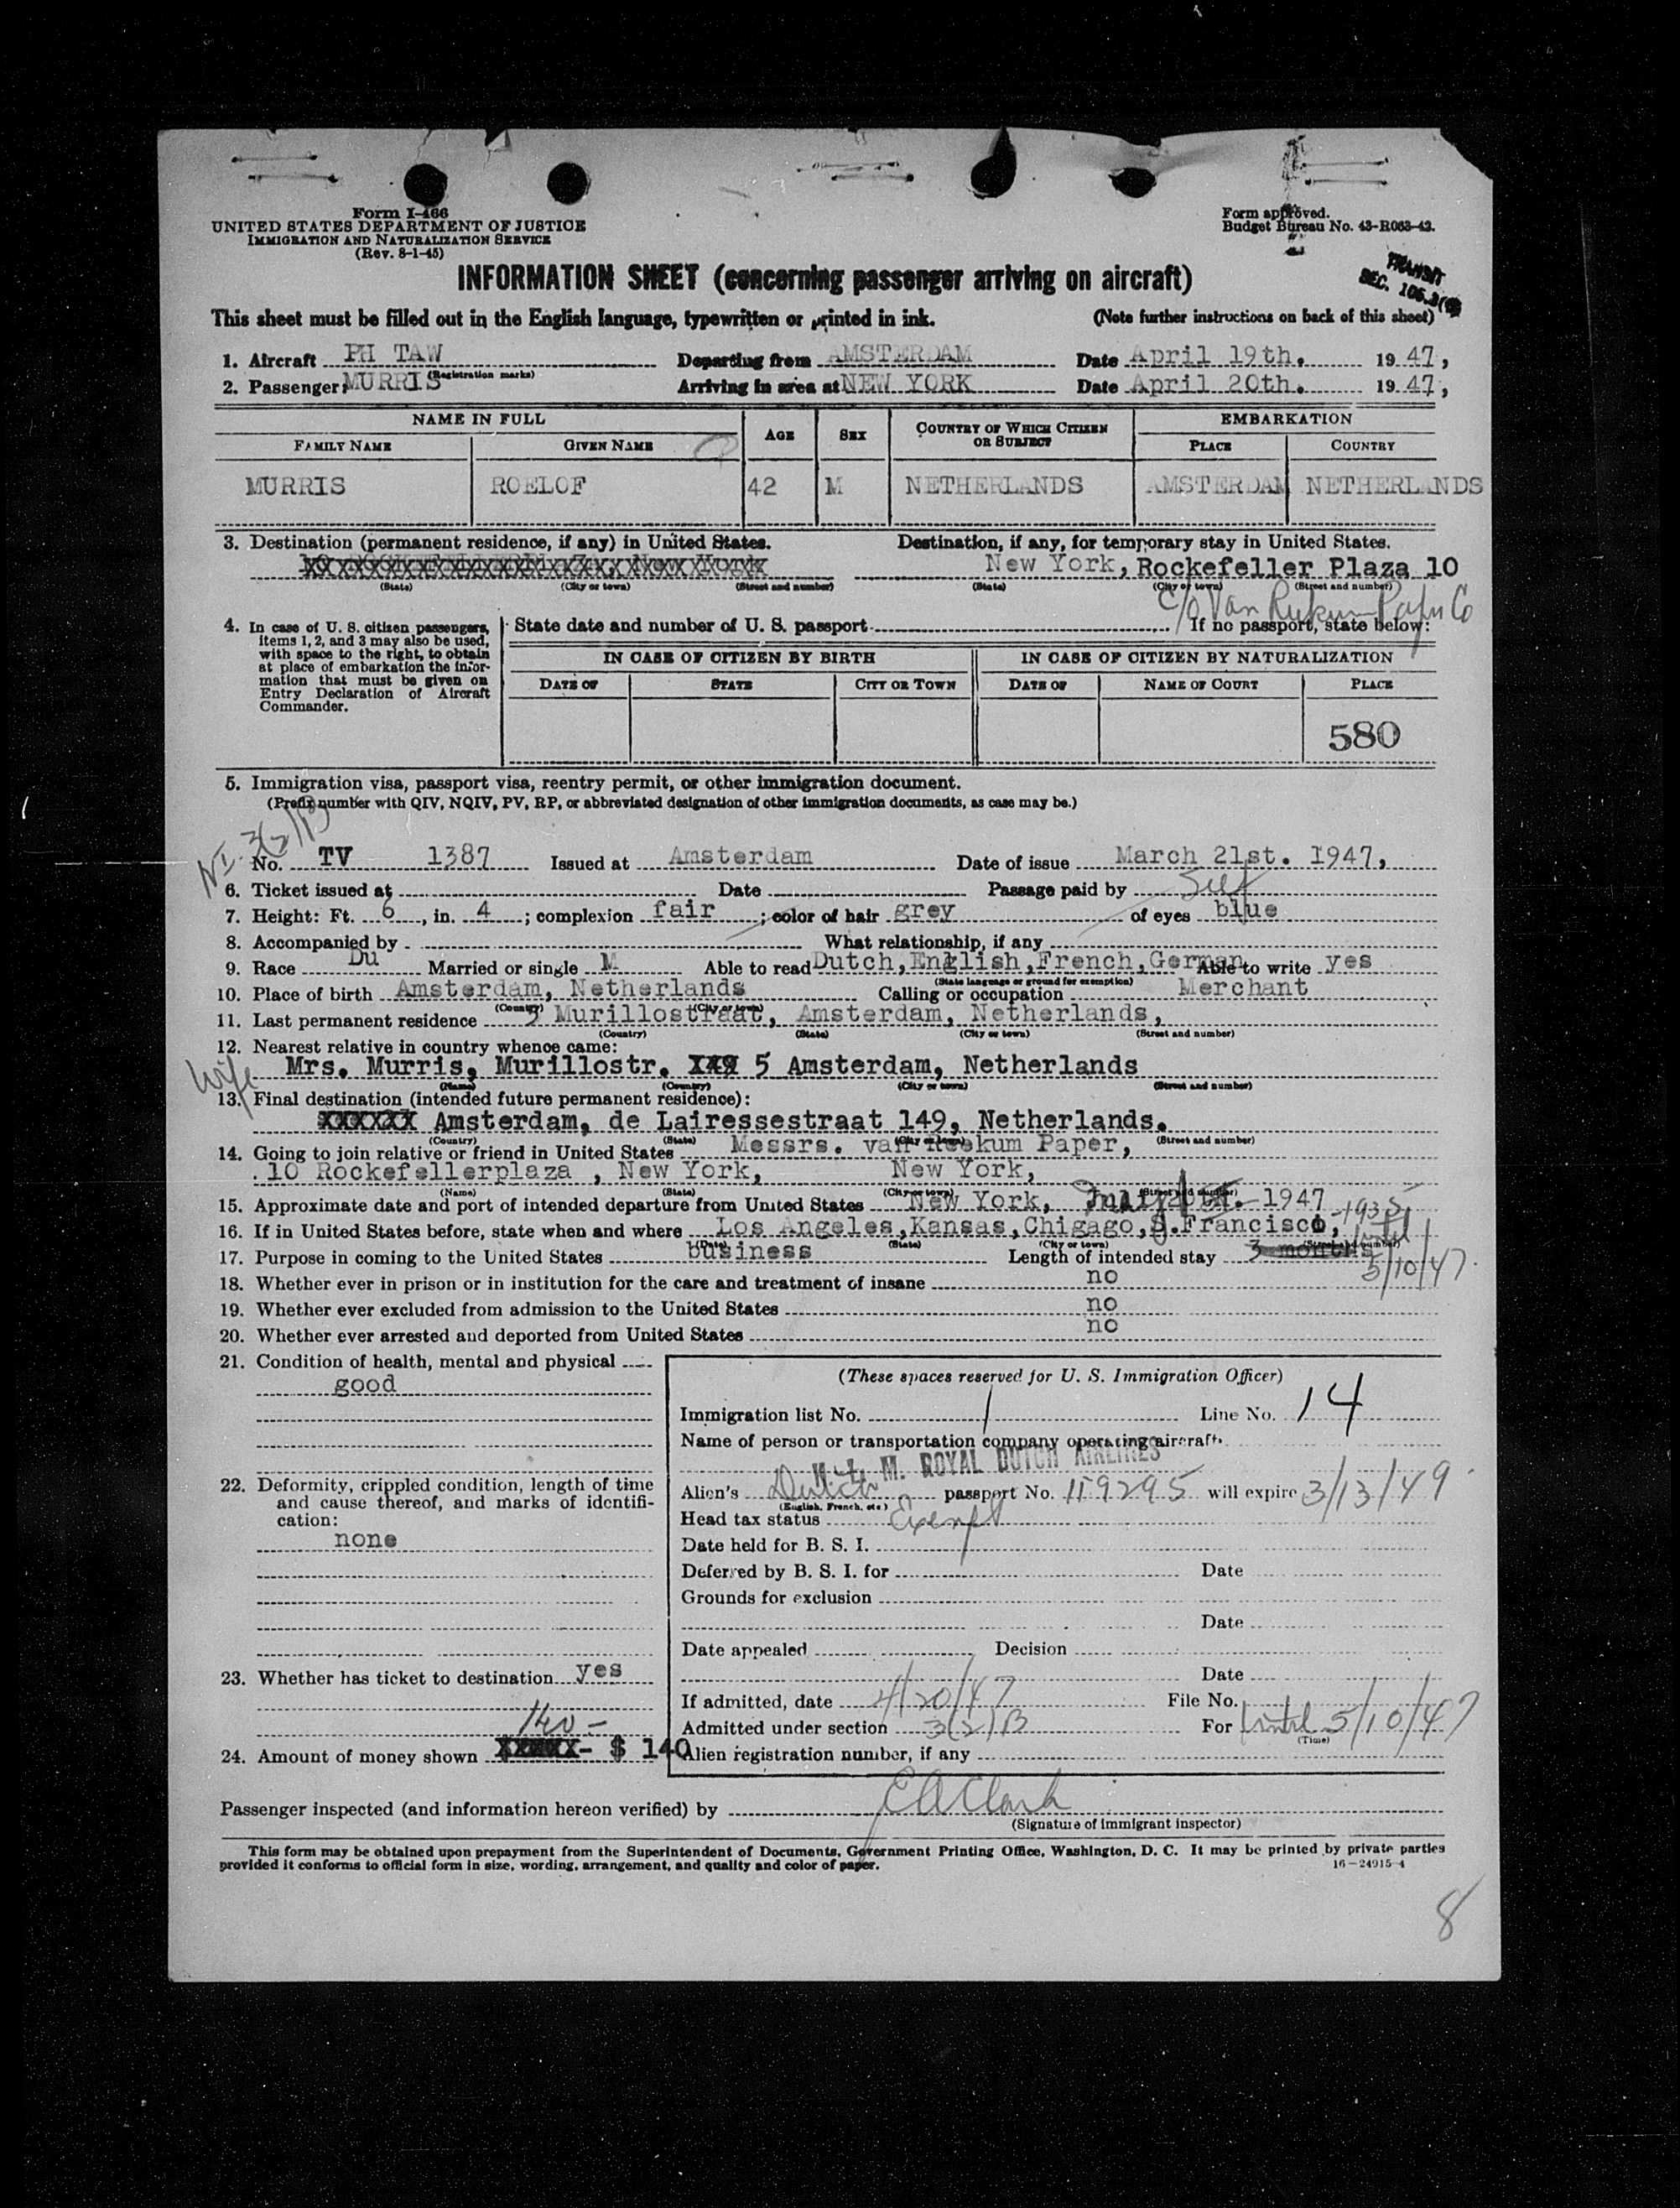 Form I-466
UNITED STATES DEPARTMENT OF JUSTICE
IMMIGRATION AND NATURALIZATION SERVICE
(Rev. 8-1-45)
Form approved.
Budget Bureau No. 43-R063-42.
INFORMATION SHEET (concerning passenger arriving on aircraft)
TRANSIT
SEC. 106.3
This sheet must be filled out in the English language, typewritten or printed in ink. (Note further instructions on back of this sheet)
1. Aircraft PH TAW Departing from AMSTERDAM Date April 19th. 19 47,
(Registration marks)
2. Passenger: MURRIS Arriving in area at NEW YORK Date April 20th. 19 47,
NAME IN FULL AGE SEX COUNTRY OF WHICH CITIZEN OR SUBJECT EMBARKATION
FAMILY NAME GIVEN NAME PLACE COUNTRY
MURRIS ROELOF 42 M NETHERLANDS AMSTERDAM NETHERLANDS
3. Destination (permanent residence, if any) in United States. Destination, if any, for temporary stay in United States.
New York, Rockefeller Plaza 10
(State) (City or town) (Street and number) (State) (City or town) (Street and number)
c/o Van Paper Co
4. In case of U. S. citizen passengers, items 1, 2, and 3 may also be used, with space to the right, to obtain at place of embarkation the information that must be given on Entry Declaration of Aircraft Commander.
State date and number of U. S. passport If no passport, state below:
IN CASE OF CITIZEN BY BIRTH IN CASE OF CITIZEN BY NATURALIZATION
DATE OF STATE CITY OR TOWN DATE OF NAME OF COURT PLACE
580
5. Immigration visa, passport visa, reentry permit, or other immigration document.
(Prefix number with QIV, NQIV, PV, RP, or abbreviated designation of other immigration documents, as case may be.)
NI 3(2)B
No. TV 1387 Issued at Amsterdam Date of issue March 21st. 1947,
6. Ticket issued at Date Passage paid by Self
7. Height: Ft. 6, in. 4; complexion fair; color of hair grey of eyes blue
8. Accompanied by What relationship, if any
9. Race Du Married or single M Able to read Dutch, English, French, German Able to write yes
(State language or ground for exemption)
10. Place of birth Amsterdam, Netherlands Calling or occupation Merchant
(Country) (City or town)
11. Last permanent residence Murillostraat, Amsterdam, Netherlands,
(Country) (State) (City or town) (Street and number)
12. Nearest relative in country whence came:
wife Mrs. Murris, Murillostr. 5 Amsterdam, Netherlands
(Name) (Country) (City or town) (Street and number)
13. Final destination (intended future permanent residence):
XXXXXX Amsterdam, de Lairessestraat 149, Netherlands.
(Country) (State) (City or town) (Street and number)
14. Going to join relative or friend in United States Messrs. van Reekum Paper,
10 Rockefellerplaza , New York, New York,
(Name) (State) (City or town) (Street and number)
15. Approximate date and port of intended departure from United States New York, 1947
16. If in United States before, state when and where Los Angeles, Kansas, Chigago, S.Francisco, -1935
(Date) (State) (City or town) (Street and number)
17. Purpose in coming to the United States business Length of intended stay 3 months until 5/10/47.
18. Whether ever in prison or in institution for the care and treatment of insane no
19. Whether ever excluded from admission to the United States no
20. Whether ever arrested and deported from United States no
21. Condition of health, mental and physical
good
22. Deformity, crippled condition, length of time and cause thereof, and marks of identification:
none
23. Whether has ticket to destination yes
140 -
24. Amount of money shown XXXXX- $ 140
(These spaces reserved for U. S. Immigration Officer)
Immigration list No. 1 Line No. 14
Name of person or transportation company operating aircraft
K. L. M. ROYAL DUTCH AIRLINES
Alien's Dutch passport No. 119295 will expire 3/13/49
(English, French, etc.)
Head tax status Exempt
Date held for B. S. I.
Deferred by B. S. I. for Date
Grounds for exclusion
Date
Date appealed Decision
Date
If admitted, date 4/20/47 File No.
Admitted under section 3(2)B For Until 5/10/47
(Time)
Alien registration number, if any
Passenger inspected (and information hereon verified) by E A Clark
(Signature of immigrant inspector)
This form may be obtained upon prepayment from the Superintendent of Documents, Government Printing Office, Washington, D. C. It may be printed by private parties
provided it conforms to official form in size, wording, arrangement, and quality and color of paper. 16—24915-4
8